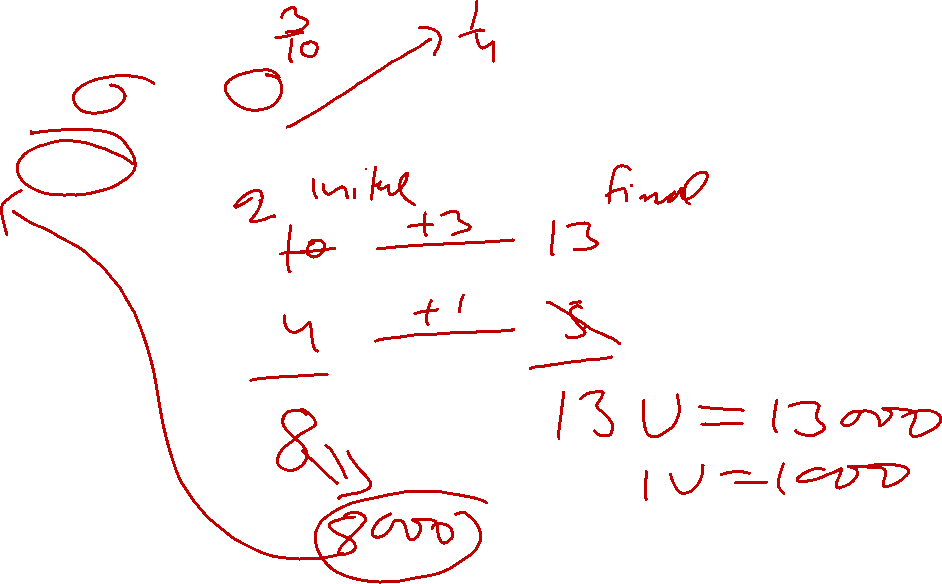 3/10 1/4
6
initial final
2
10 +3 13
4 +1 5
8 13 U = 13000
1 U = 1000
8000